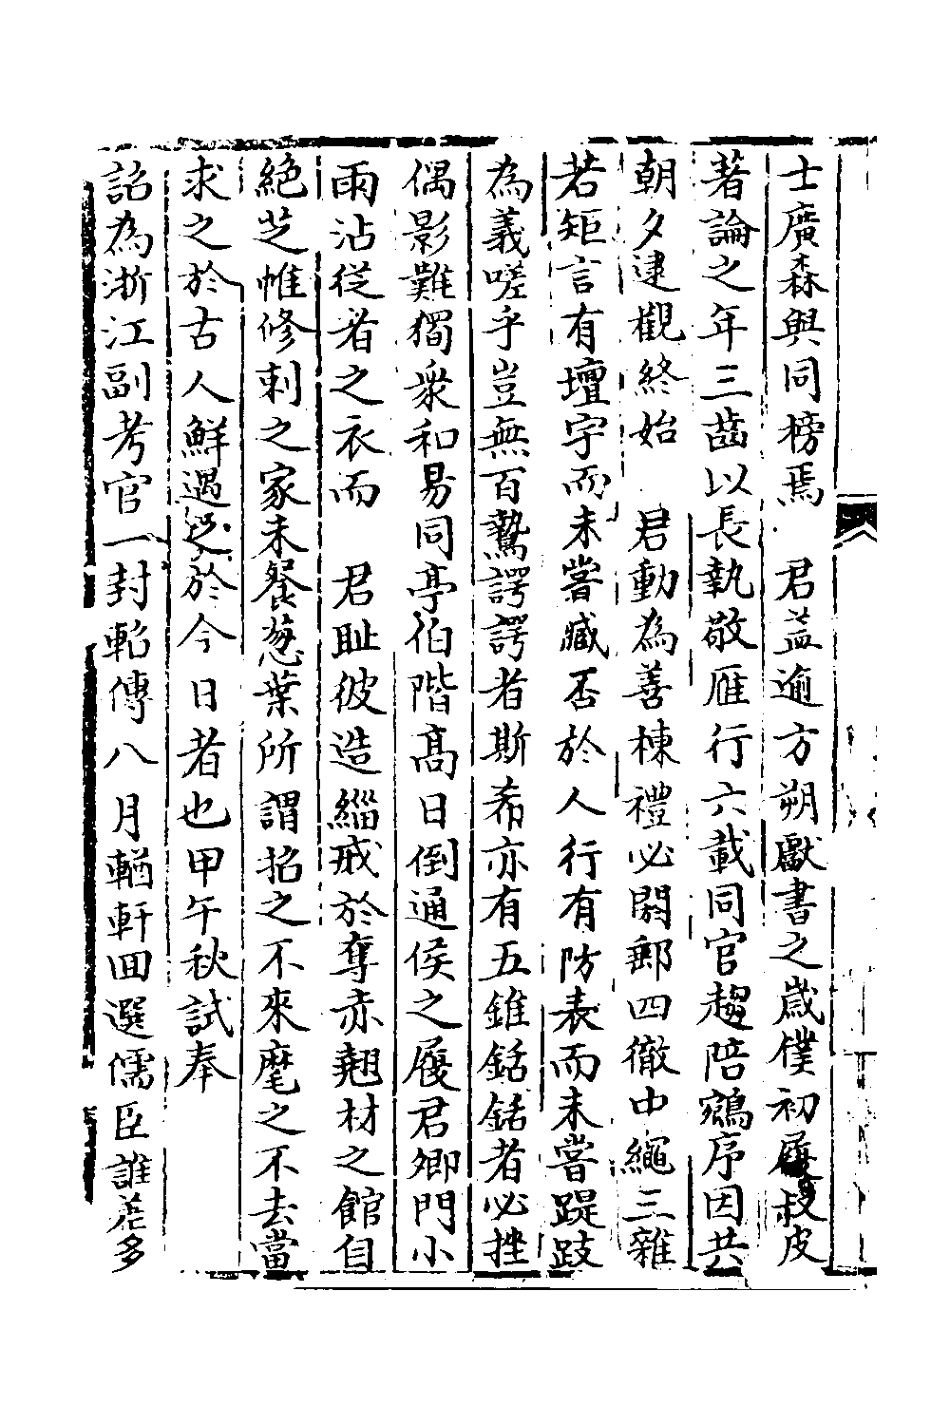 士廣森與同榜焉　君葢逾方朔獻書之嵗僕初屨叔皮
著論之年三齒以長執敬雁行六載同官趨陪鵷序因共
朝夕逮觀終始　君動為善棟禮必閎郵四徹中繩三雜
若矩言有壇宇而未嘗臧否於人行有防表而未嘗踶跂
為義嗟乎豈無百鷙諤諤者斯希亦有五錐銛銛者必挫
偶影難獨衆和易同亭伯階高日倒通侯之屐君卿門小
雨沾從者之衣而　君耻彼造緇戒於奪赤翹材之館自
絶芝帷修刺之家未餐葱葉所謂招之不來麾之不去當
求之於古人鮮遇之於今日者也甲午秋試奉
詔為浙江副考官一封軺傳八月輶軒回選儒臣誰差多